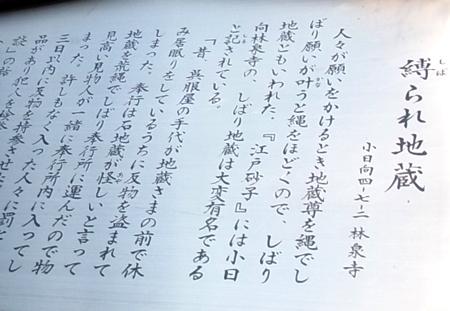 縛られ地蔵
しば
小日向四-七-二 林泉寺
人々が願いをかけるとき地蔵尊を縄でし
ばり願いが叶うと縄をほどくので、しばり
かな
地蔵ともいわれた。『江戸砂子』には小日
向林泉寺の、しばり地蔵は大変有名である
しょ
と記されている。
「昔、呉服屋の手代が地蔵さまの前で休
み居眠りをしているうちに反物を盗まれて
しまった。奉行は石地蔵が怪しいと言って
地蔵を荒縄でしばり奉行所に運んだ
見高い見物人が一緒に奉行所内に入ってし
まった。許しもなく入った人々に罰と
三日以内に反物を持参させた
品があり犯人を
談」の